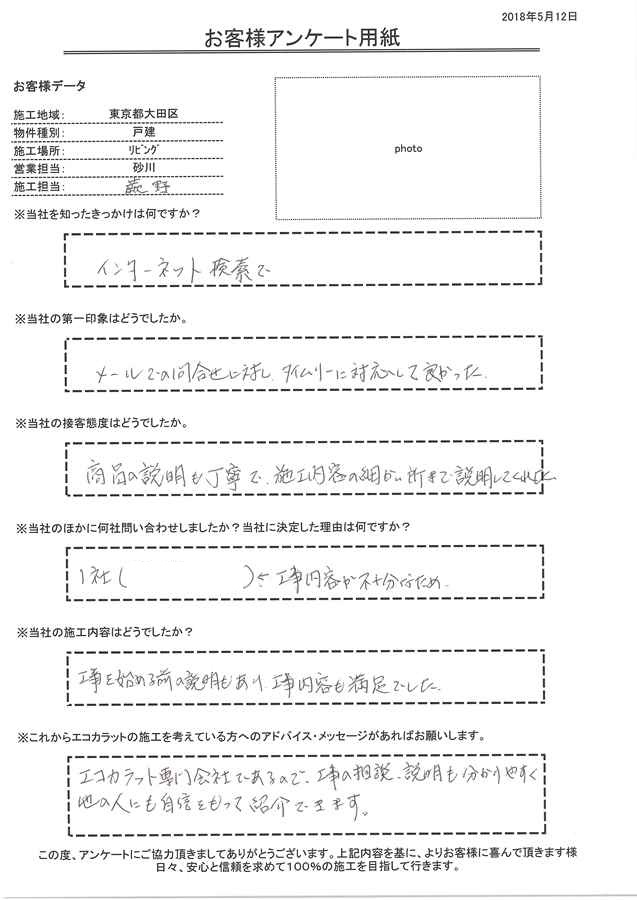 2018年5月12日
お客様アンケート用紙
お客様データ
施工地域: 東京都大田区
物件種別: 戸建
施工場所: ﾘﾋﾞﾝｸﾞ
営業担当: 砂川
施工担当: 野
photo
※当社を知ったきっかけは何ですか？
インターネット検索で
※当社の第一印象はどうでしたか。
メールでの問合せに対し、タイムリーに対応して良かった。
※当社の接客態度はどうでしたか。
商品の説明も丁寧で、施工内容の細かい所まで説明してくれた。
※当社のほかに何社問い合わせしましたか？当社に決定した理由は何ですか？
1社( ) 工事内容が不十分なため。
※当社の施工内容はどうでしたか？
工事を始める前の説明もあり工事内容も満足でした。
※これからエコカラットの施工を考えている方へのアドバイス・メッセージがあればお願いします。
エコカラット専門会社であるので、工事の相談、説明も分かりやすく
他の人にも自信をもって紹介できます。
この度、アンケートにご協力頂きましてありがとうございます。上記内容を基に、よりお客様に喜んで頂きます様
日々、安心と信頼を求めて100%の施工を目指して行きます。